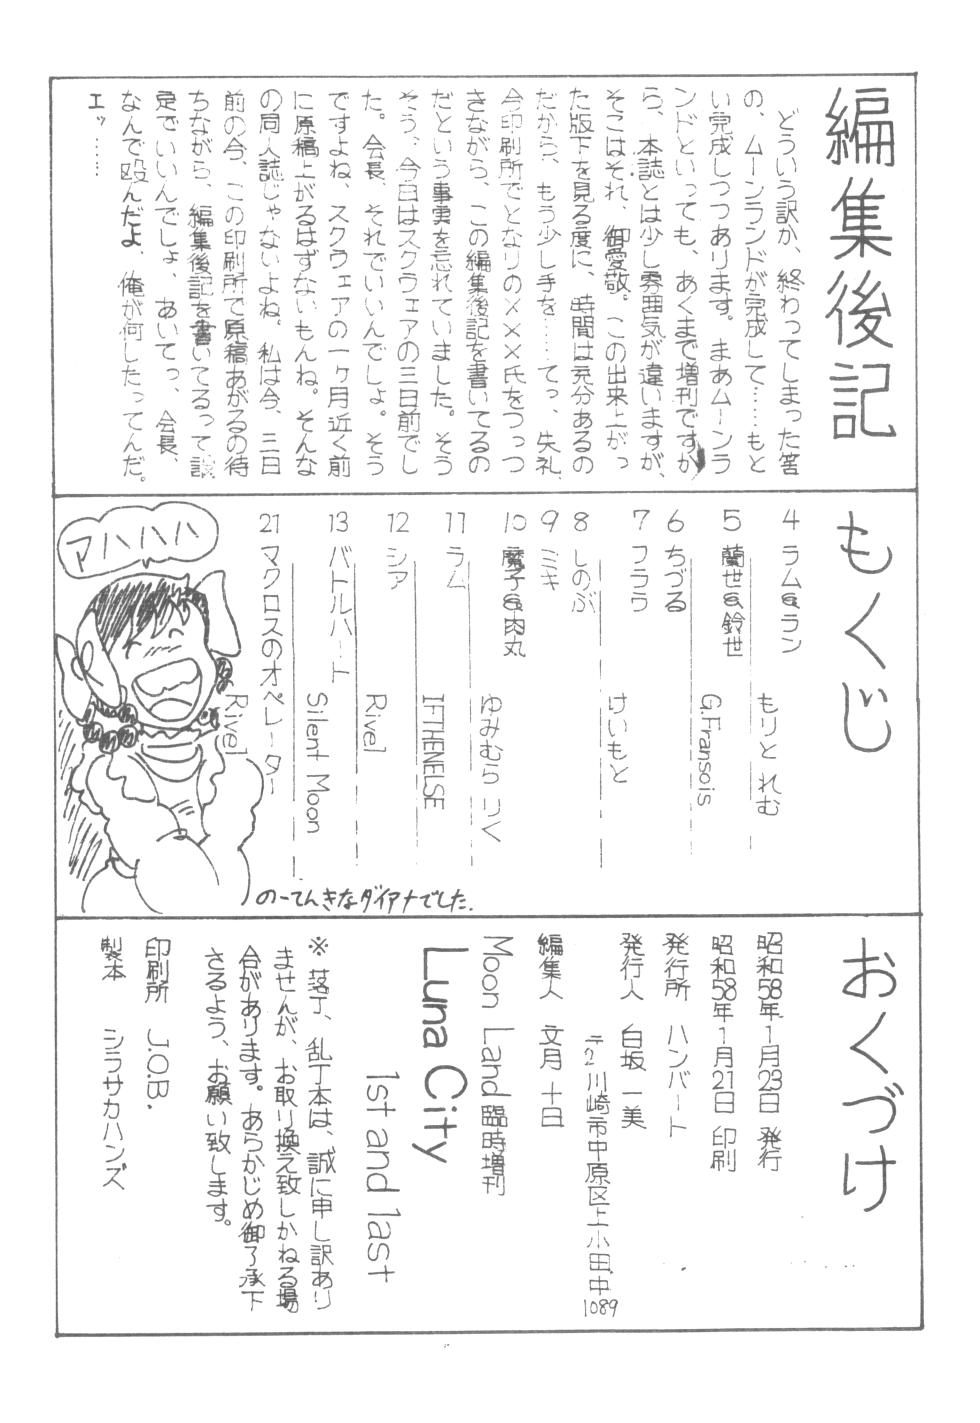 編集後記
どういう訳か、終わってしまった筈
の、ムーンランドが完成して……もと
い完成しつつあります。まあムーンラ
ンドといっても、あくまで増刊ですか
ら、本誌とは少し雰囲気が違いますが、
そこはそれ、御愛敬。この出来上がっ
た版下を見る度に、時間は充分あるの
だから、もう少し手を……てっ、失礼、
今印刷所でとなりの×××氏をつっつ
きながら、この編集後記を書いてるの
だという事実を忘れていました。そう
そう、今日はスクウェアの三日前でし
た。会長、それでいいんでしょ。そう
ですよね、スクウェアの一ヶ月近く前
に原稿上がるはずないもんね。そんな
の同人誌じゃないよね。私は今、三日
前の今、この印刷所で原稿あがるの待
ちながら、編集後記を書いてるって設
定でいいんでしょ、あいてっ、会長、
なんで殴んだよ、俺が何したってんだ。
エッ……
もくじ
4 ラム&ラン
もりと れむ
5 蘭世&鈴世
G.Fransois
6 ちづる
7 フララ
けいもと
8 しのぶ
9 ミキ
10 魔子&肉丸
ゆみむら りく
11 ラム
IFTHENELSE
12 シア
Rivel
13 バトルハート
Silent Moon
21 マクロスのオペレーター
Rivel
アハハハ
のーてんきなダイアナでした。
おくづけ
昭和58年1月23日 発行
昭和58年1月21日 印刷
発行所 ハンバート
発行人 白坂 一美
〒2川崎市中原区上小田中
1089
編集人 文月 十日
Moon Land 臨時増刊
Luna City
1st and last
※ 落丁、乱丁本は、誠に申し訳あり
ませんが、お取り換え致しかねる場
合があります。あらかじめ御了承下
さるよう、お願い致します。
印刷所 J.O.B.
製本 シラサカハンズ